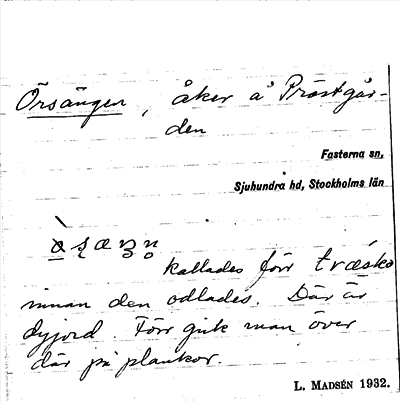 Örsängen, åker å Prästgår-
den
Fasterna sn,
Sjuhundra hd, Stockholms län
kallades förr træsko
innan den odlades. Där är
dyjord. Förr gick man över
där på plankor.
L. MADSÉN 1932.